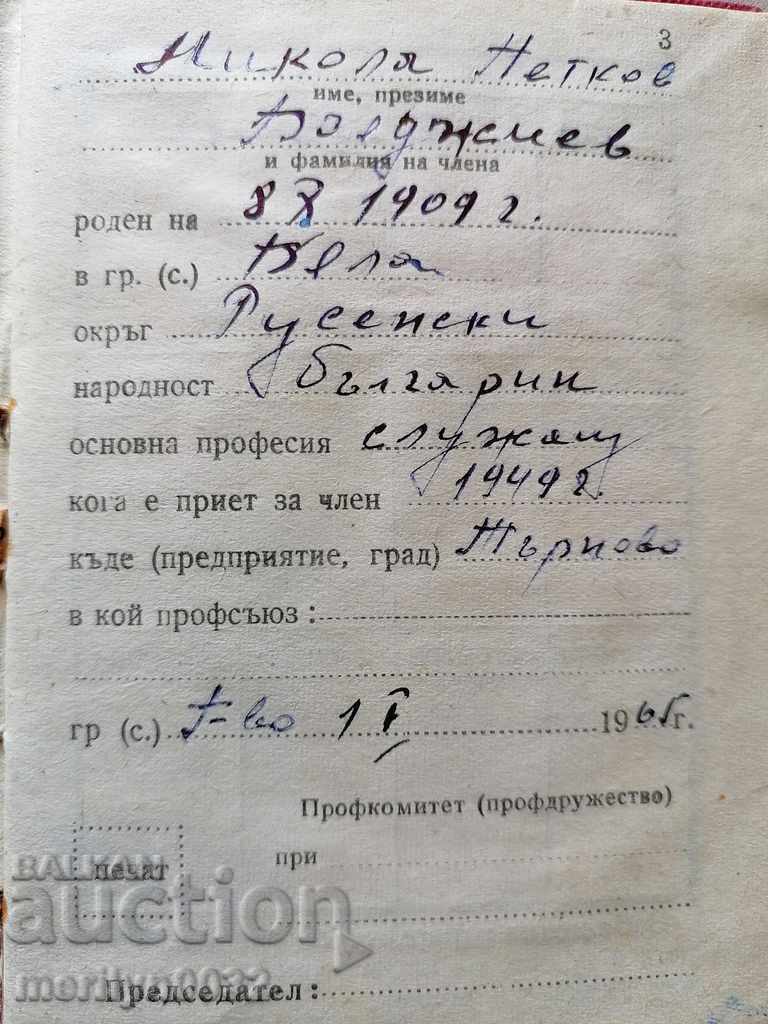 3
Никола Петков
име, презиме
Бояджиев
и фамилия на члена
роден на 8 X 1909 г.
в гр. (с.) Бяла
окръг Русенски
народност българин
основна професия служащ
кога е приет за член 1949 г.
къде (предприятие, град) Търново
в кой профсъюз:
гр (с.) Т-во 1 I 1965 г.
Профкомитет (профдружество)
печат при
BALKAN
auction
merilyn0033
Председател: